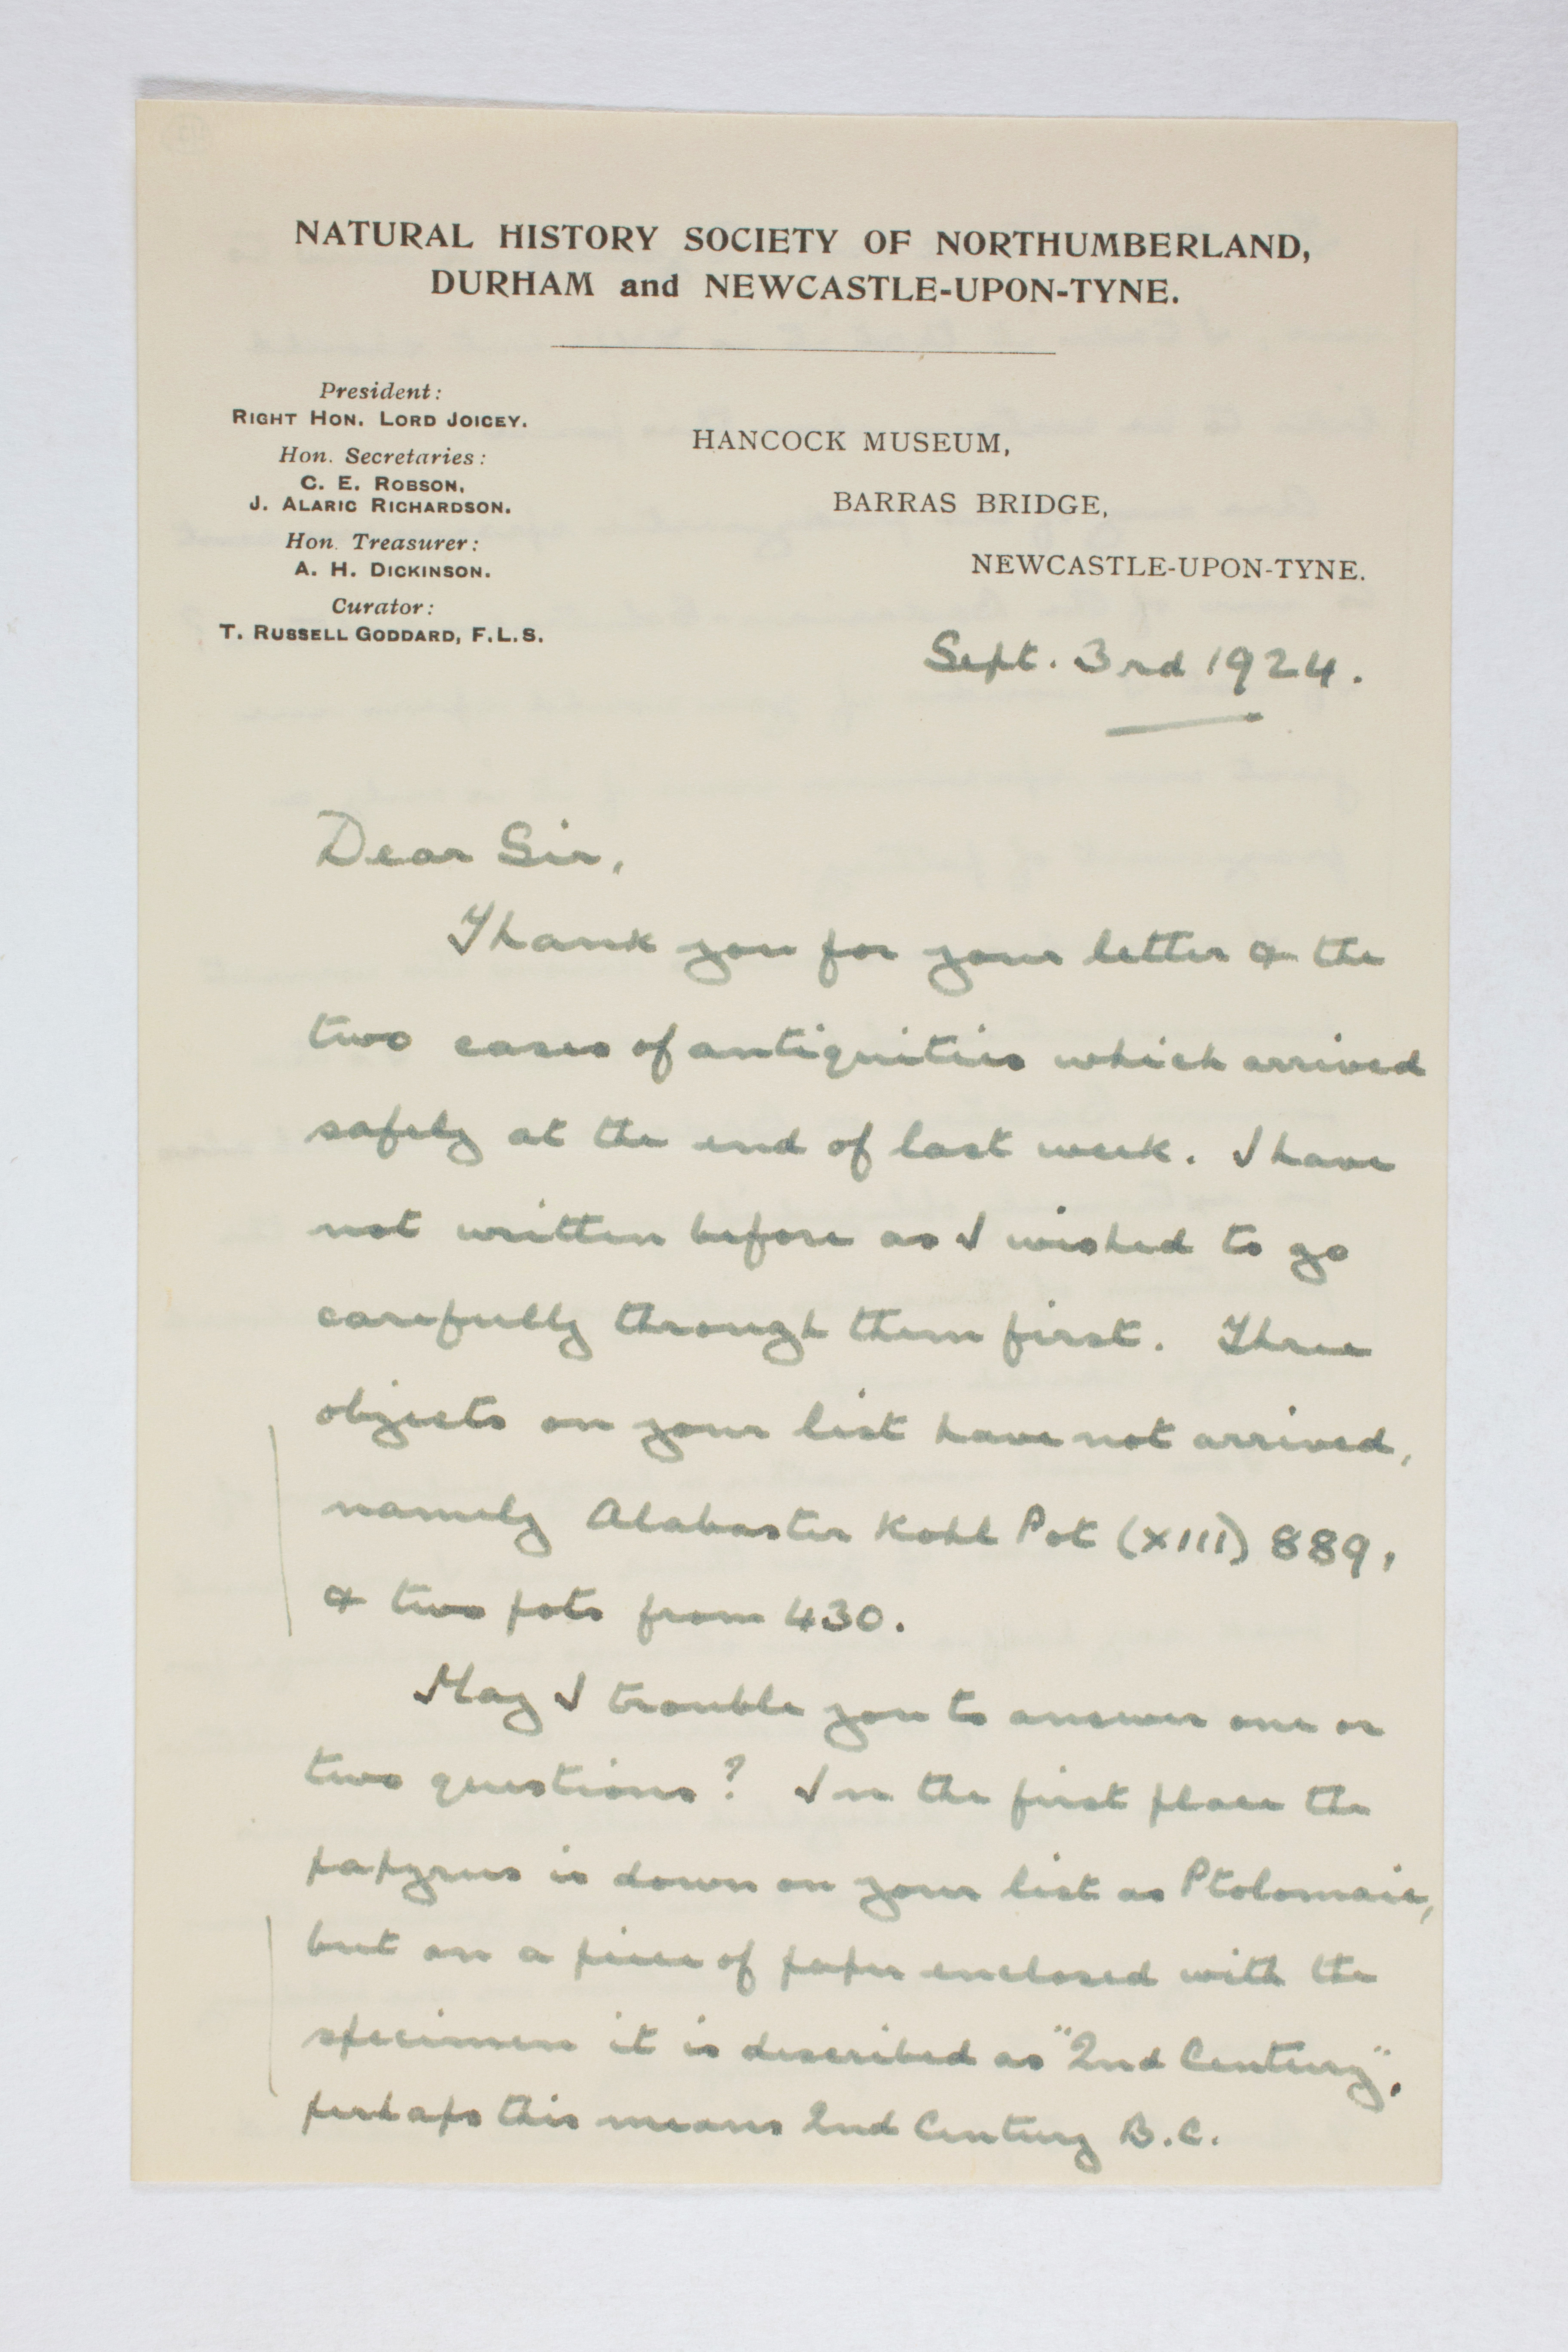 NATURAL HISTORY SOCIETY OF NORTHUMBERLAND,
DURHAM and NEWCASTLE-UPON-TYNE.
President:
RIGHT HON. LORD JOICEY.
Hon. Secretaries:
C. E. ROBSON,
J. ALARIC RICHARDSON.
Hon. Treasurer:
A. H. DICKINSON.
Curator:
T. RUSSELL GODDARD, F.L.S.
HANCOCK MUSEUM,
BARRAS BRIDGE,
NEWCASTLE-UPON-TYNE.
Sept. 3rd 1924.
Dear Sir,
Thank you for your letter & the
two cases of antiquities which arrived
safely at the end of last week. I have
not written before as I wished to go
carefully through them first. Three
objects on your list have not arrived,
namely Alabaster Kohl Pot (XIII) 889,
& two pots from 430.
May I trouble you to answer one or
two questions? In the first place the
papyrus is down on your list as Ptolomaic,
but on a piece of paper enclosed with the
specimen it is described as "2nd Century".
perhaps this means 2nd Century B.C.